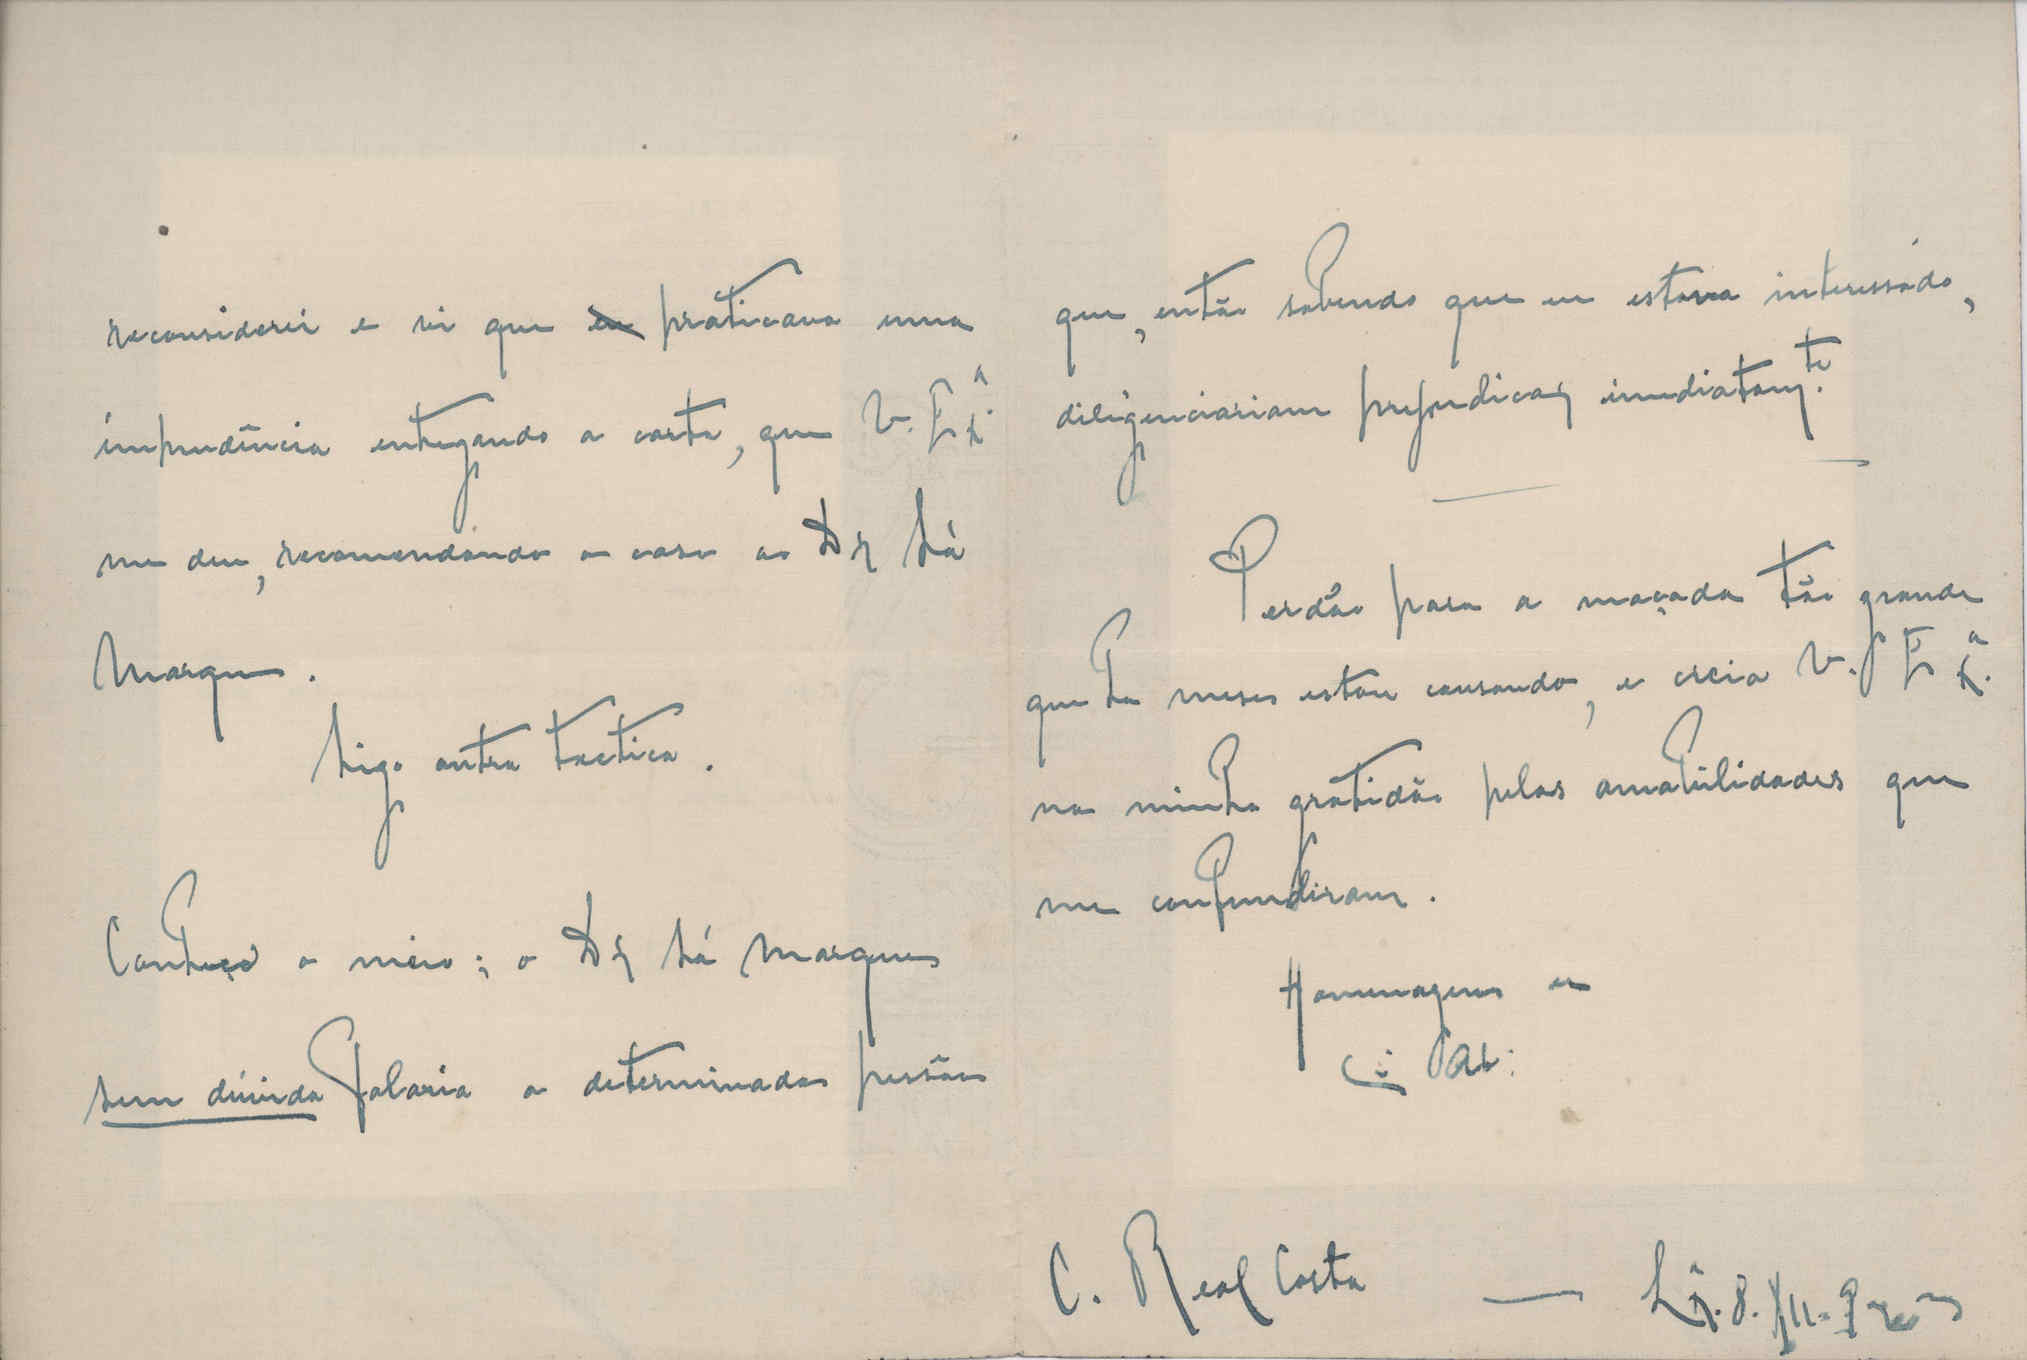 reconsiderei e vi que eu praticava uma
imprudência entregando a carta, que V. Exª
me deu, recomendando o caso ao Dr Sá
Marques.
Sigo outra tactica.
Conheço o meio; o Dr Sá Marques
sem dúvida falaria a determinadas pessôas
que, então sabendo que eu estava interessado,
diligenciariam prejudicar imediatamte.
Perdão para a maçada tão grande
que ha meses estou causando, e creia V. Exª
na minha gratidão pelas amabilidades que
me confundiram.
Homenagens
C. Real Costa — Lx. 8. XII.